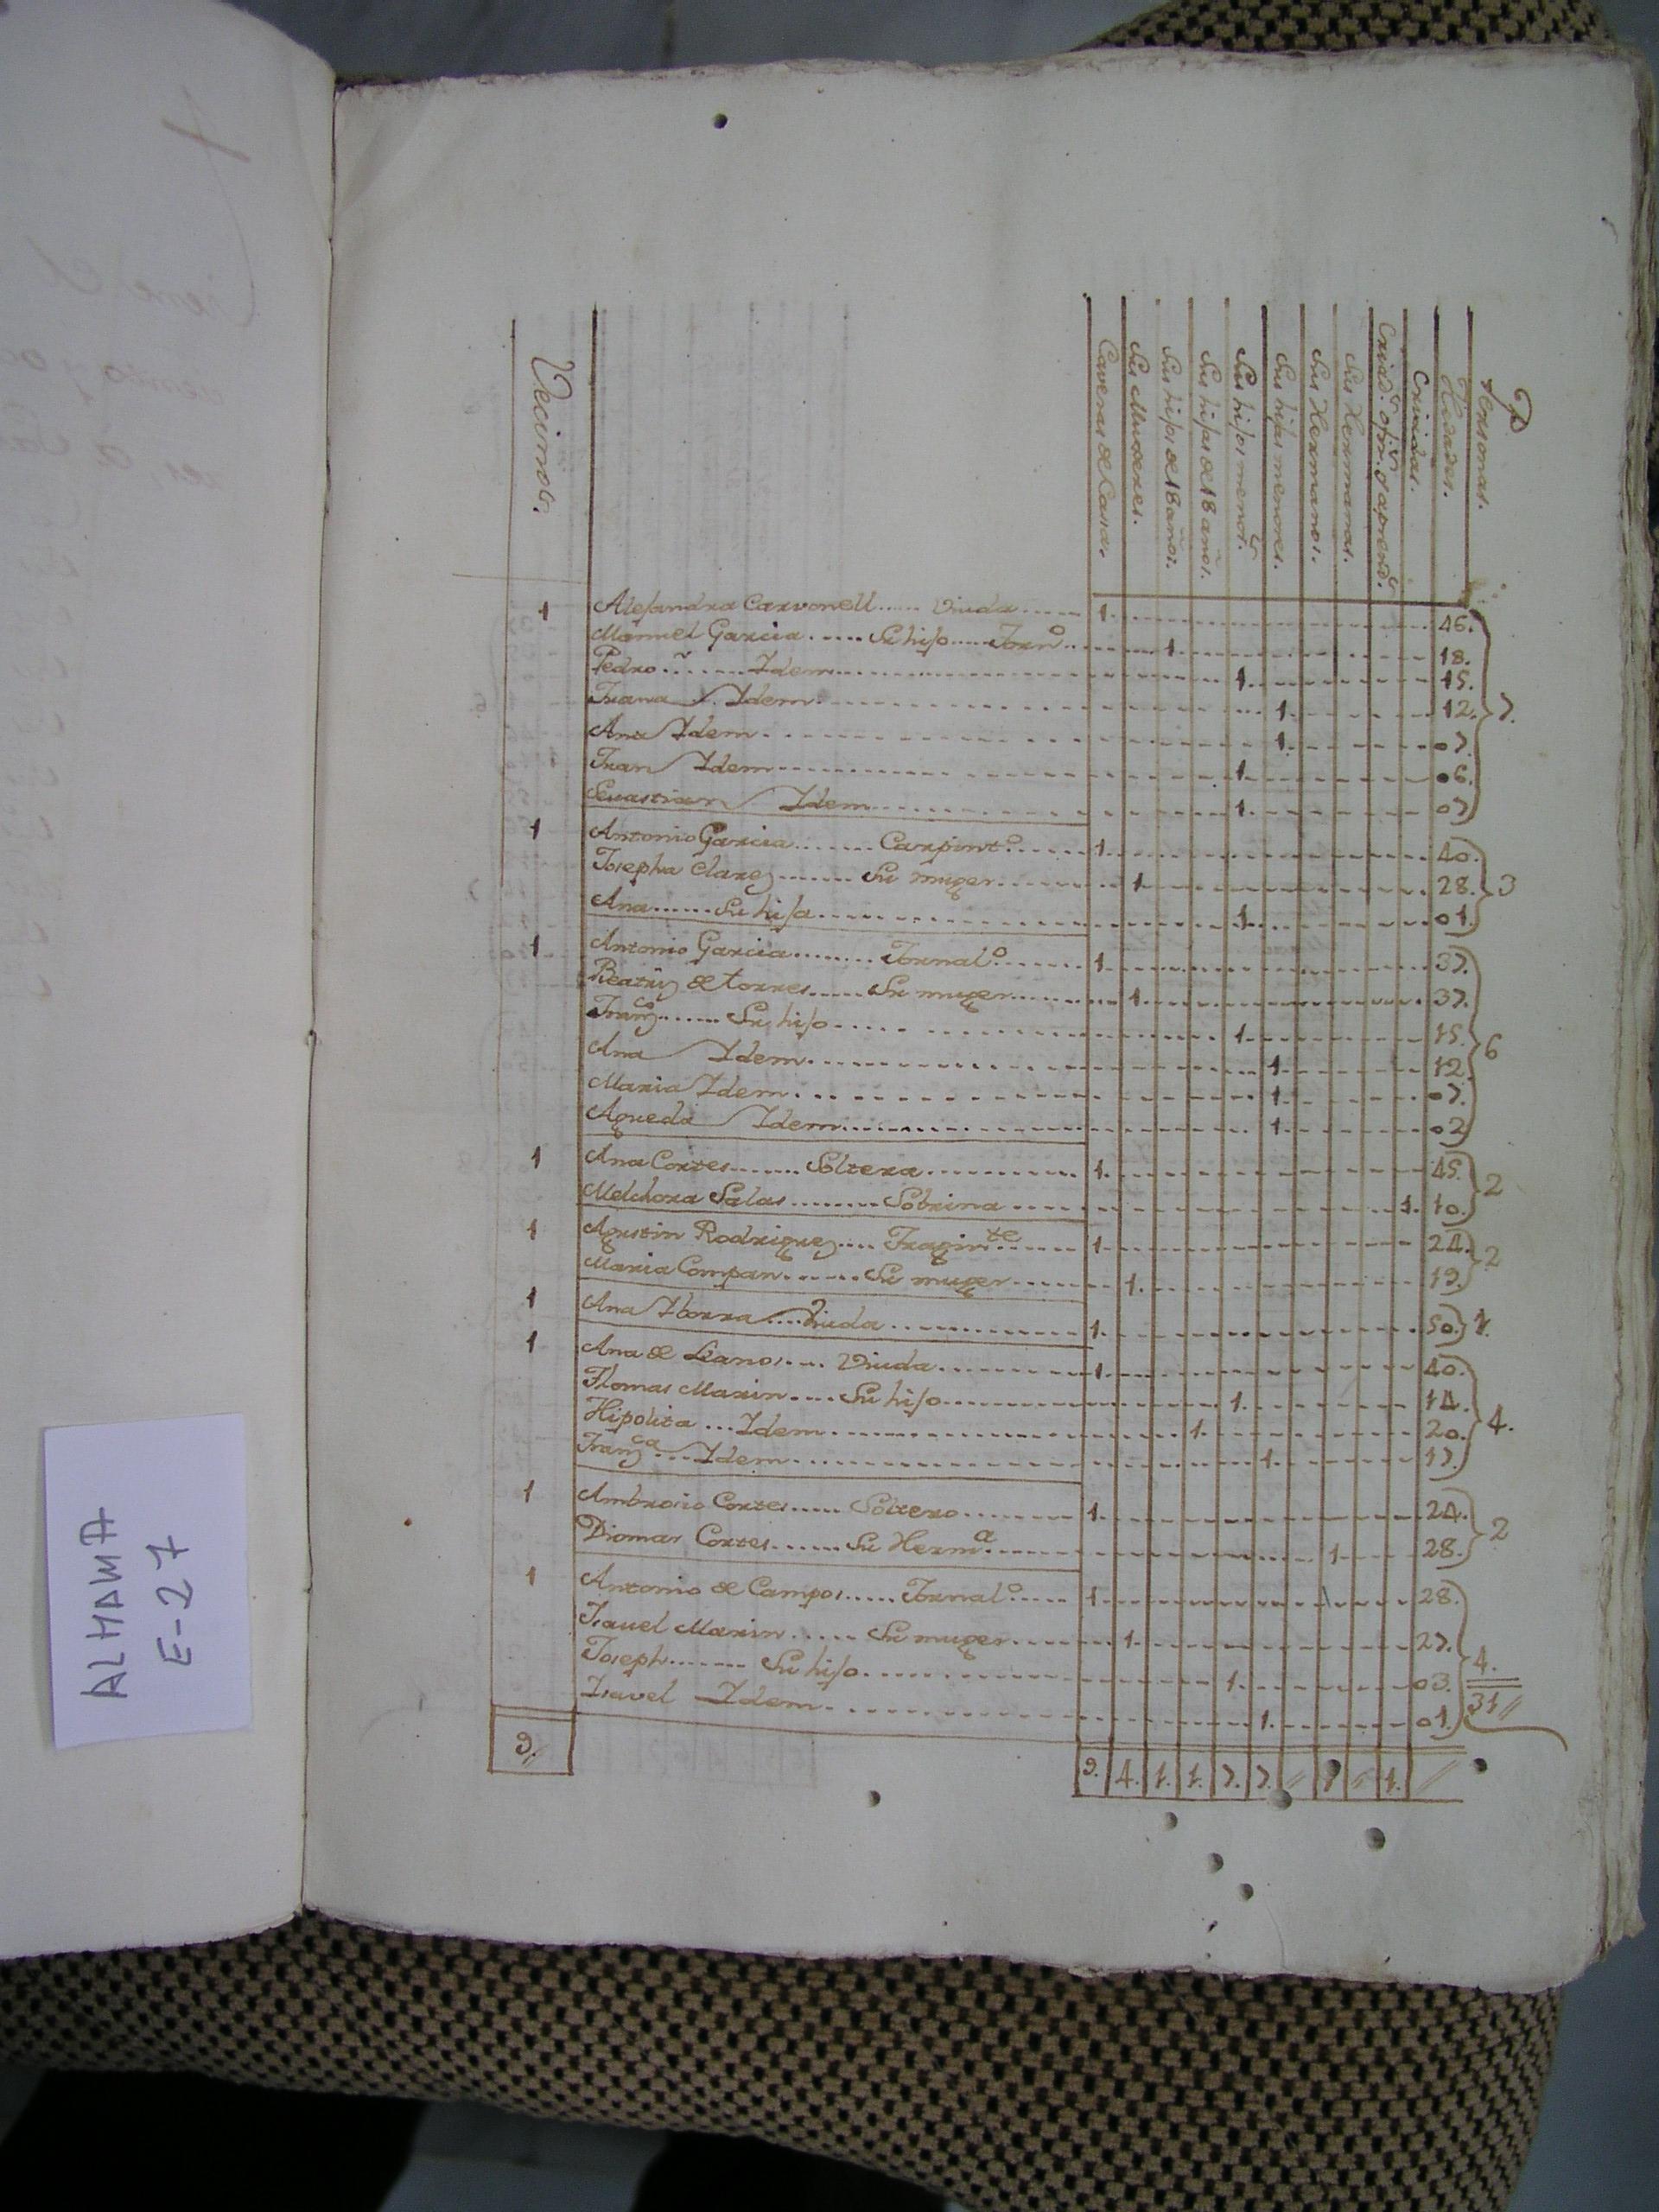 Vecinos.
Caveras de Casas.
Sus Mugeres.
Sus hijos de 18 años.
Sus hijas de 18 años.
Sus hijos menors.
Sus hijas menores.
Sus Hermanos.
Sus Hermanas.
Criads. ofirs. o aprends.
Criadas.
Hedades.
Personas.
1 Alejandra Carvonell...... Viuda...... 1. 46.
Manuel Garcia...... Su hijo..... Jorno.. 1. 18.
Pedro...... Idem...... 1. 15.
Juana Idem...... 1. 12. 7.
Ana Idem...... 1. 07.
Juan Idem...... 1. 06.
Sevastian Idem...... 1. 07
1 Antonio Garcia....... Carpinto...... 1. 40.
Josepha Clarez....... Su muger...... 1. 28. 3
Ana...... Su hija...... 1. 01.
1 Antonio Garcia........ Jornalo...... 1. 37.
Beatriz de torres..... Su muger...... 1. 37.
Franco...... Su hijo...... 1. 15. 6
Ana Idem...... 1. 12.
Maria Idem...... 1. 07.
Agueda Idem...... 1. 02
1 Ana Cortes....... Soltera...... 1. 45. 2
Melchora Salas........ Sobrina...... 1. 10.
1 Agustin Rodriguez.... Traginte...... 1. 24. 2
Maria Compan....... Su muger...... 1. 19.
1 Ana Iborra.... Viuda...... 1. 50. 1.
1 Ana de Leanos.... Viuda...... 1. 40.
Thomas Marin.... Su hijo...... 1. 14.
Hipolita... Idem...... 1. 20. 4.
Franca... Idem...... 1. 17.
1 Ambrosio Cortes..... Soltero...... 1. 24. 2
Diomar Cortes...... Su Herma...... 1. 28.
1 Antonio de Campos..... Jornalo...... 1. 28.
Isavel Marin..... Su muger...... 1. 27.
Joseph....... Su hijo...... 1. 03. 4.
Isavel Idem...... 1. 01. 31
9. 9. 4. 1. 1. 7. 7. 1 1.
ALHAMA
E-27